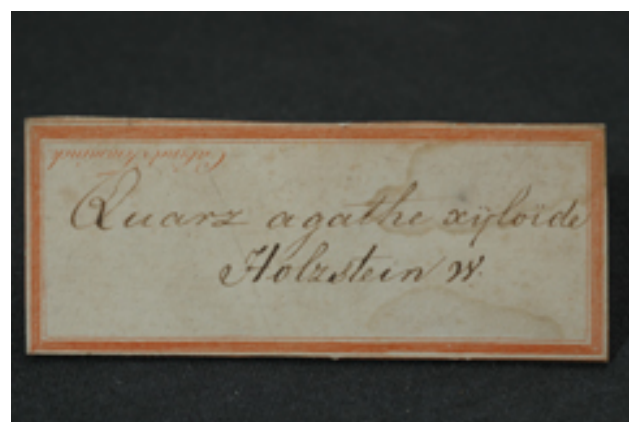 Quarz agathe xÿloïde
Holzstein W.